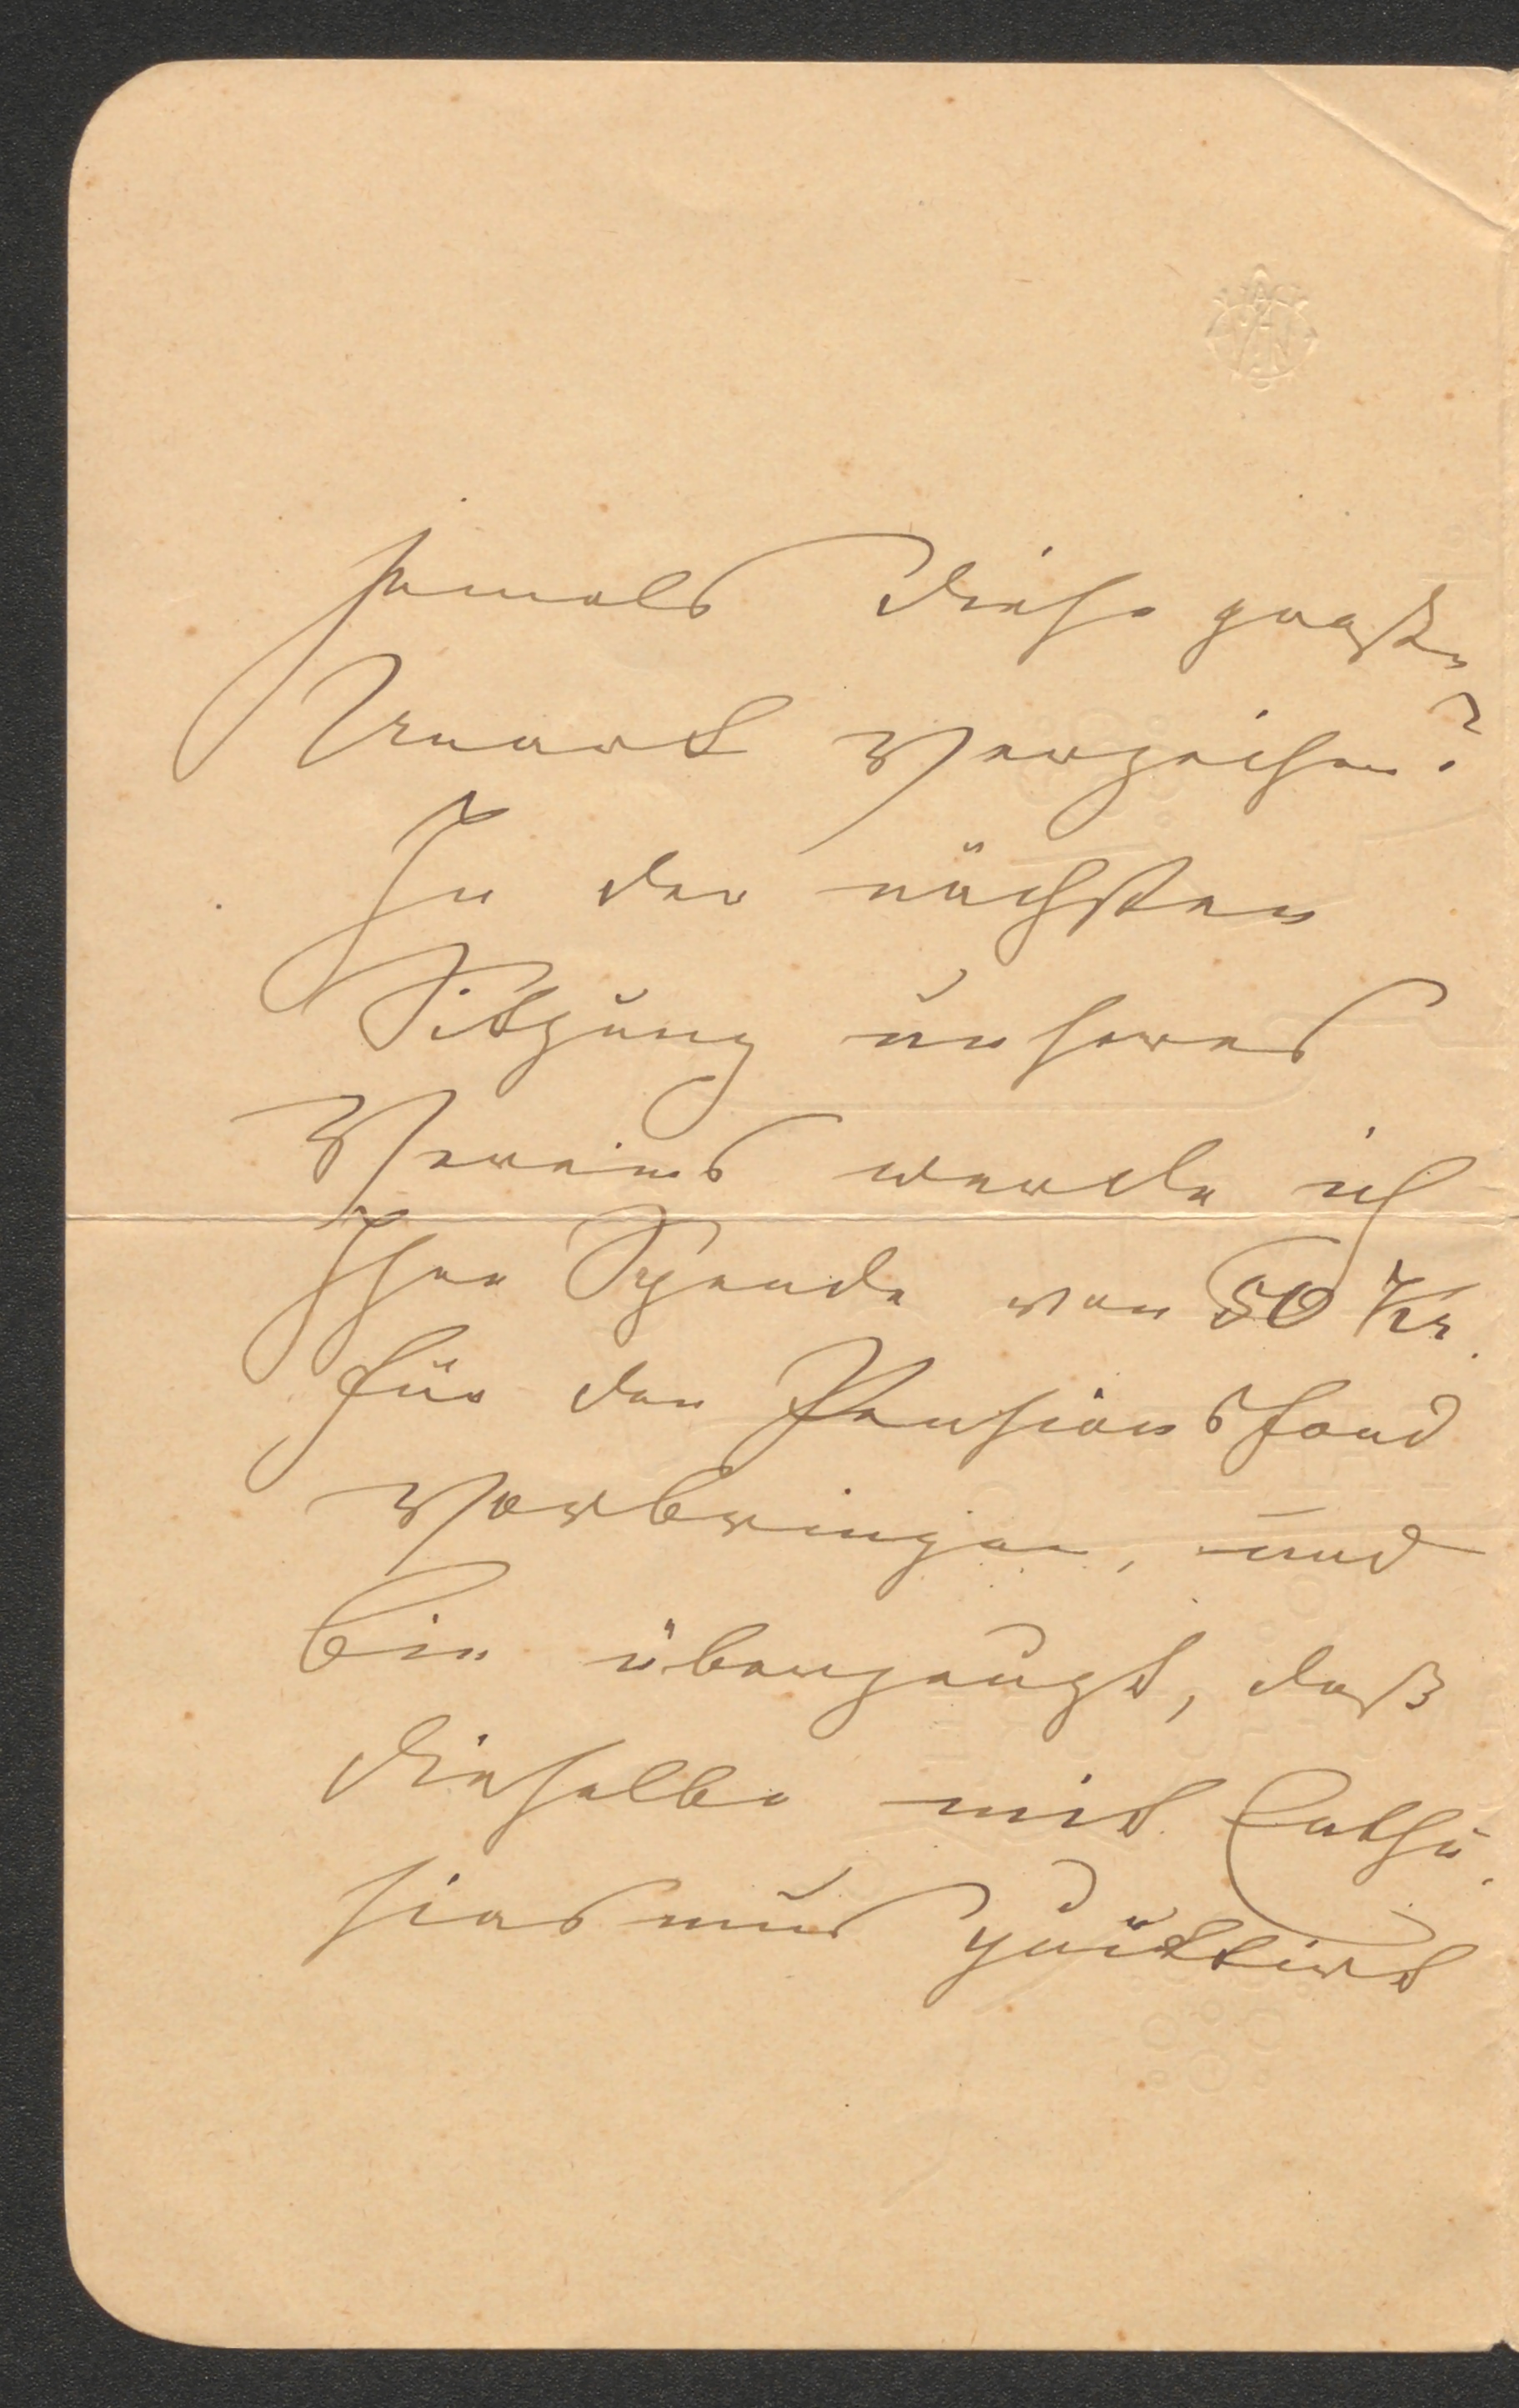 jemals diese große
Unart verzeihen?
In der nächsten
Sitzung unseres
Vereins werde ich
Ihre Spende von 50 Kr.
für den Pensionsfond
vorbringen, und
bin überzeugt, daß
dieselbe mit Enthu-
siasmus quittirt